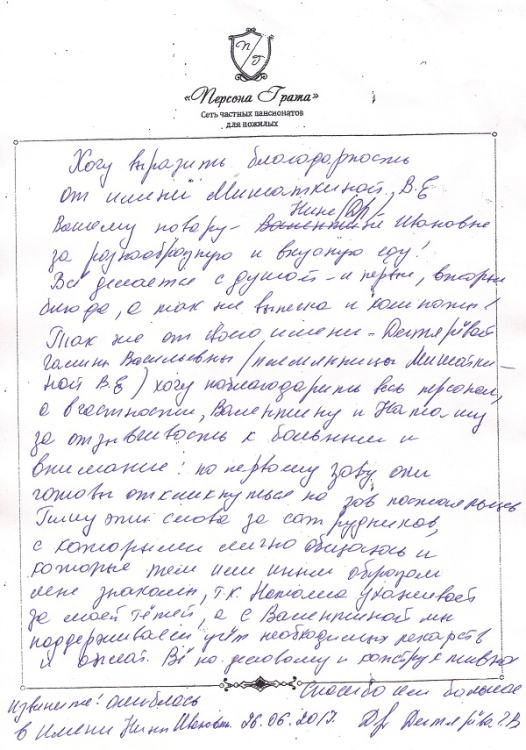 П Г
«Персона Грата»
Сеть частных пансионатов
для пожилых
Хочу выразить благодарность
от имени Мишаткиной В.Е
Нине
Вашему повару - Валентине Ивановне
за разнообразную и вкусную еду!
Всё делается с душой - и первые, вторые
блюда, а так же выпечка и компоты!
Так же от своего имени - Дегтярёвой
Галины Васильевны (племянницы Мишатки-
ной В.Е) хочу поблагодарить весь персонал,
а в частности, Валентину и Наталью
за отзывчивость к больным и
внимание: по первому зову они
готовы откликнуться на зов постояльцев
Пишу эти слова за сотрудников,
с которыми лично общаюсь и
которые тем или иным образом
мне знакомы, т.к. Наталья ухаживает
за моей тётей, а с Валентиной мы
поддерживаем учёт необходимых лекарств
и оплат. Всё по деловому и конструктивно
Спасибо им большое
извините! ошиблась
в имени Нины Ивановны. 26.06.2017. Дегтярёва Г.В